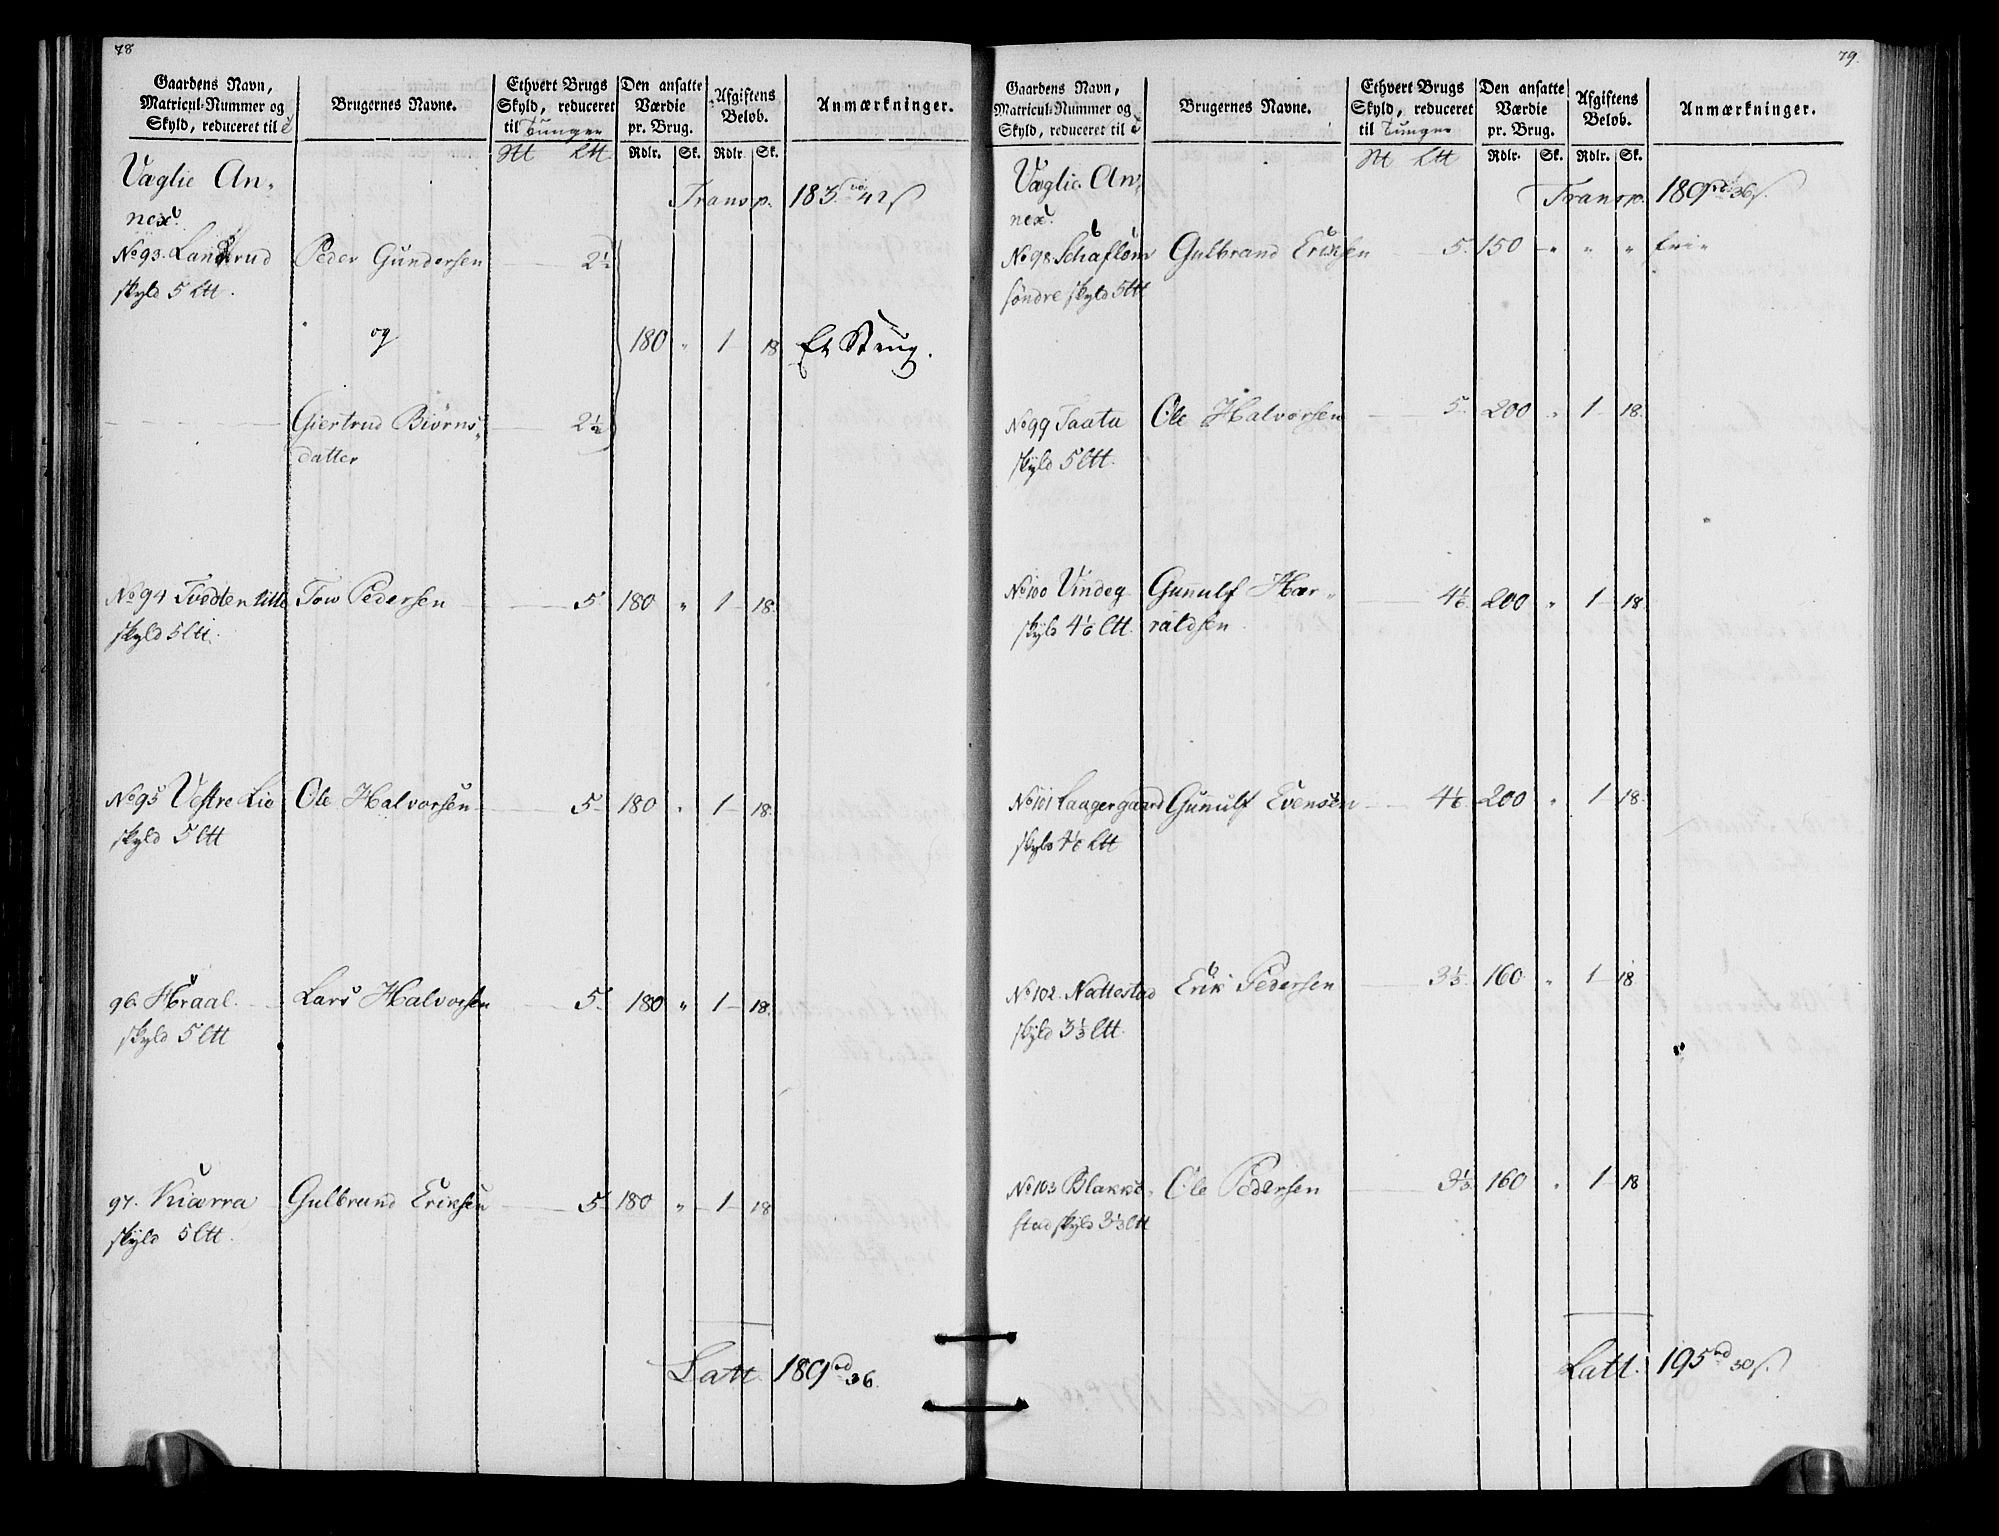 78
Gaardens Navn, Matricul-Nummer og Skyld, reduceret til
Brugernes Navne.
Ethvert Brugs Skyld, reduceret til Tunger
Den ansatte Værdie pr. Brug.
Afgiftens Beløb.
Anmærkninger.
Rdlr. Sk. Rdlr. Sk.
Væglie An-
nex.
Transp. 183 42 s
No 93. Landerud Peder Gundersen 2½
skyld 5 Ltt.
og 180 " 1 18 Et Brug.
Giertrud Biörns- 2½
datter
No 94 Tvedten litle Tow Pedersen 5 180 " 1 18
skyld 5 Ltt.
No 95 Vestre Lie Ole Halvorsen 5 180 " 1 18
skyld 5 Ltt
96. Horaal Lars Halvorsen 5 180 " 1 18
skyld 5 Ltt
97. Kiærra Gulbrand Eriksen 5 180 " 1 18
skyld 5 Ltt.
Latt. 189 rd 36.
79.
Gaardens Navn, Matricul-Nummer og Skyld, reduceret til
Brugernes Navne.
Ethvert Brugs Skyld, reduceret til Tunger
Den ansatte Værdie pr. Brug.
Afgiftens Beløb.
Anmærkninger.
Rdlr. Sk. Rdlr. Sk.
Væglie An-
nex.
Transp. 189 rd 36 s.
No 98 Schafløm Gulbrand Eriksen 5 150 " " " fri
søndre skyld 5 Ltt
No 99 Taata Ole Halvorsen 5 200 " 1 18
skyld 5 Ltt.
No 100 Vindeg Gunnulf Har- 4⅙ 200 " 1 18
skyld 4⅙ Ltt. raldsen
No 101 Laagergaard Gunulf Evensen 4⅙ 200 " 1 18
skyld 4⅙ Ltt
No 102. Nattestad Erik Pedersen 3⅓ 160 " 1 18
skyld 3⅓ Ltt.
No 103 Blakke- Ole Pedersen 3⅓ 160 " 1 18
stad skyld 3⅓ Ltt
Latt. 195 rd 30 s.